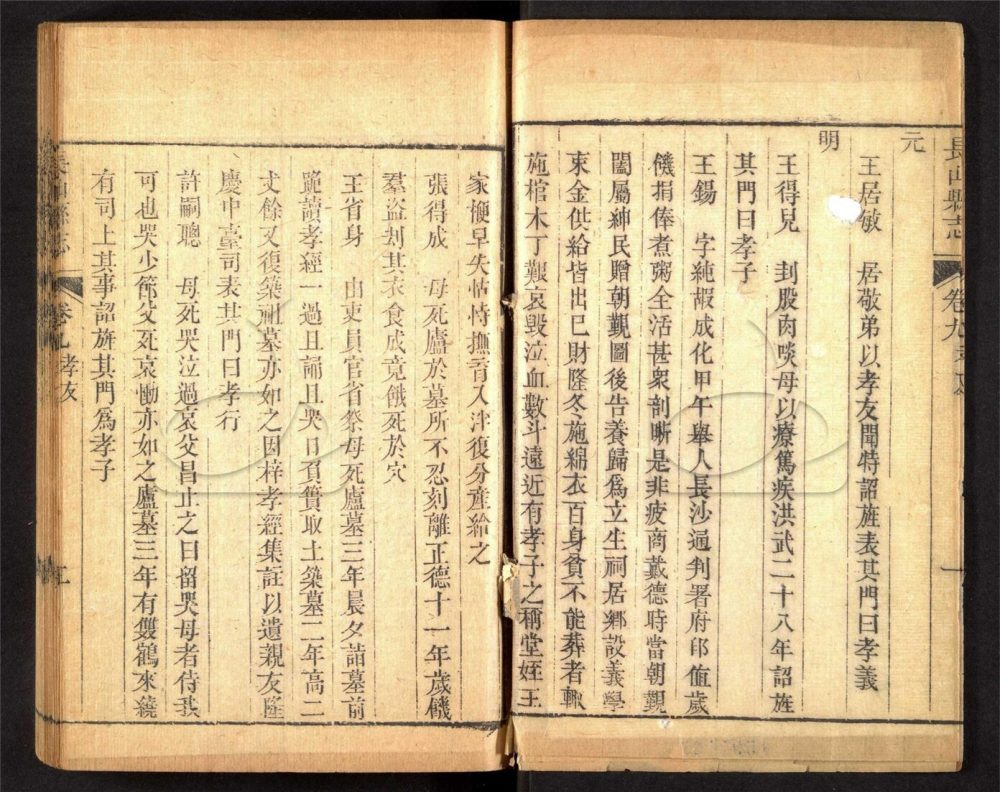 長山縣志
卷九
元
王居敏　居敬弟以孝友聞特詔旌表其門曰孝義
明
王得兒　刲股肉啖母以療篤疾洪武二十八年詔旌
其門曰孝子
王錫　字純嘏成化甲午舉人長沙通判署府印値歲
饑捐俸煮粥全活甚衆剖晰是非疲商戴德時當朝覲
闔屬紳民贈朝覲圖後告養歸爲立生祠居鄉設義學
束金供給皆出已財隆冬施綿衣百身貧不能葬者輙
施棺木丁艱哀毀泣血數斗遠近有孝子之稱堂姪王
家楩早失怙恃撫育入泮復分產給之
張得成　母死廬於墓所不忍刻離正德十一年歲饑
羣盜刦其衣食成竟餓死於穴
王省身　由吏員官省祭母死廬墓三年晨夕詣墓前
跪讀孝經一過且誦且哭日負簣取土築墓二年高二
丈餘又復築祖墓亦如之因梓孝經集註以遺親友隆
慶中臺司表其門曰孝行
許嗣聰　母死哭泣過哀父昌止之曰留哭母者侍我
可也哭少節父死哀慟亦如之廬墓三年有雙鶴來繞
有司上其事詔旌其門爲孝子
長山縣志
卷九
孝友